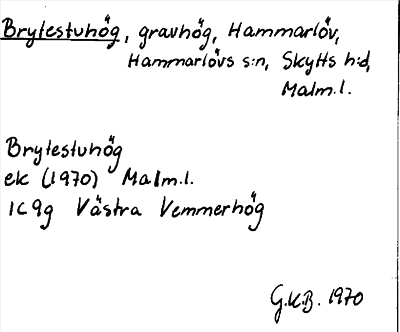 Brytestuhög, gravhög, Hammarlöv,
Hammarlövs s:n, Skytts h:d,
Malm.l.
Brytestuhög
ek (1970) Malm.l.
1C9g Västra Vemmerhög
G.K.B. 1970